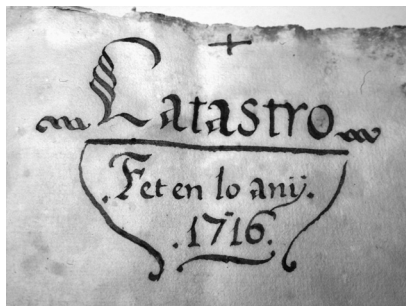 Catastro
.Fet en lo anÿ.
.1716.